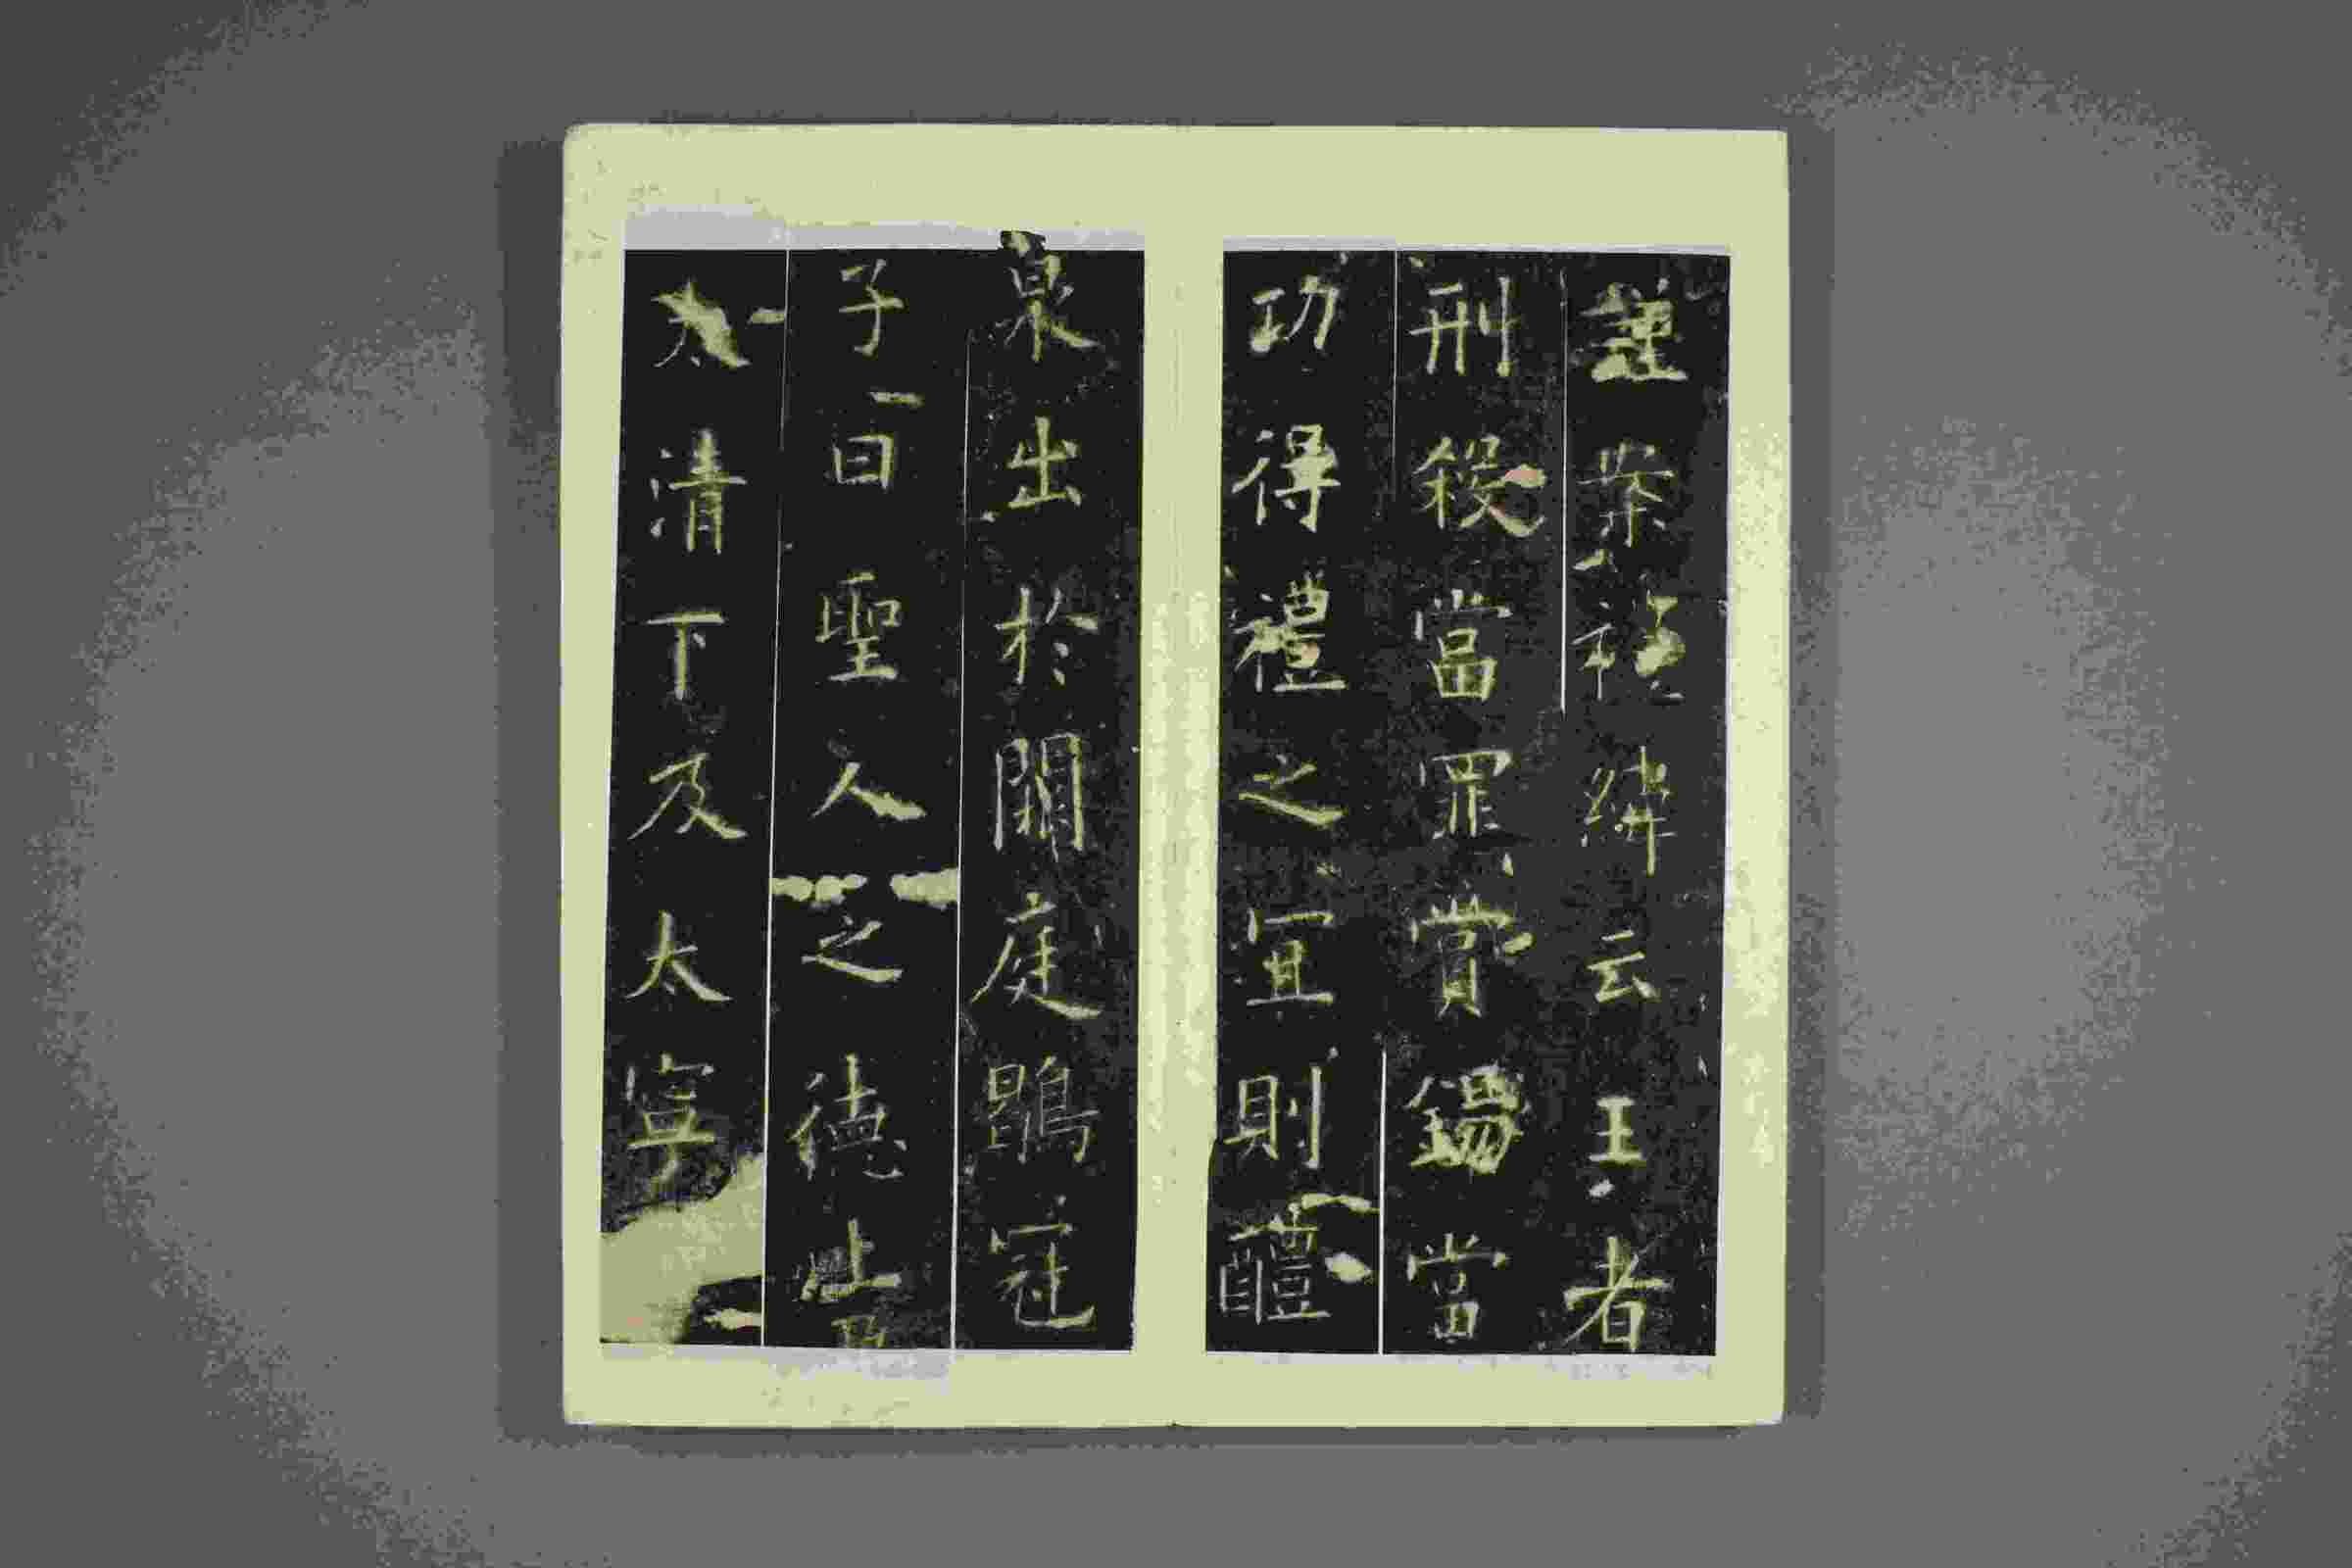 謹案禮緯云王者
刑殺當罪賞錫當
功得禮之宜則醴
泉出於闕庭鶡冠
子曰聖人之德上
太清下及太寧